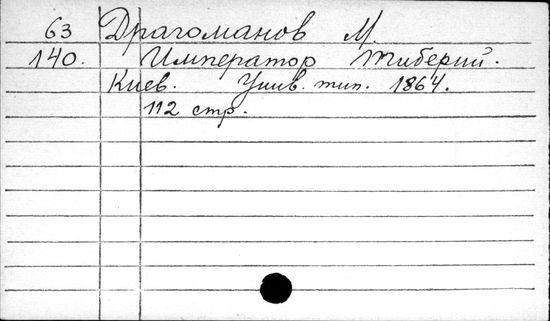 63 Драгоманов М.
140. Император Тиберий.
Киев. Унив. тип. 1864.
112 стр.